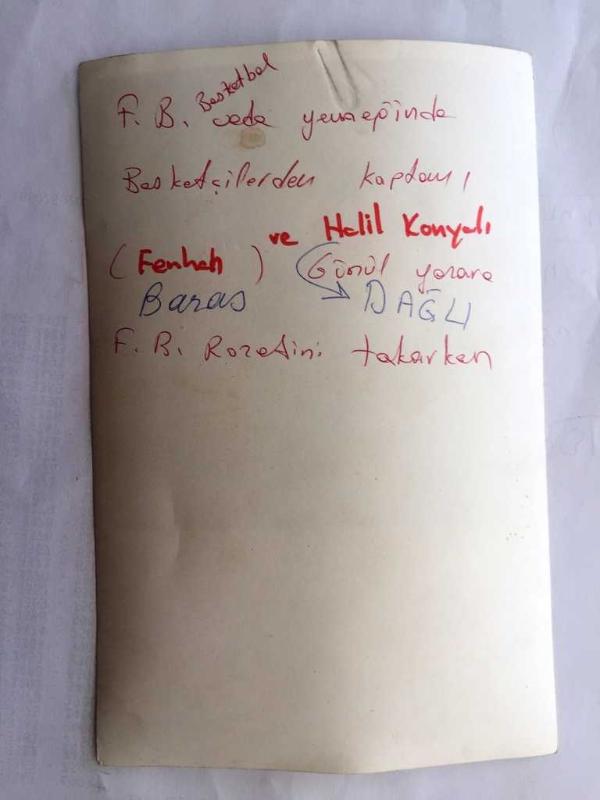 Basketbol
F. B. veda yemeğinde
Basketçilerden kaptanı
ve Halil Konyalı
(Ferhah) Gönül yazara
Baras DAĞLI
F. B. Rozetini takarken